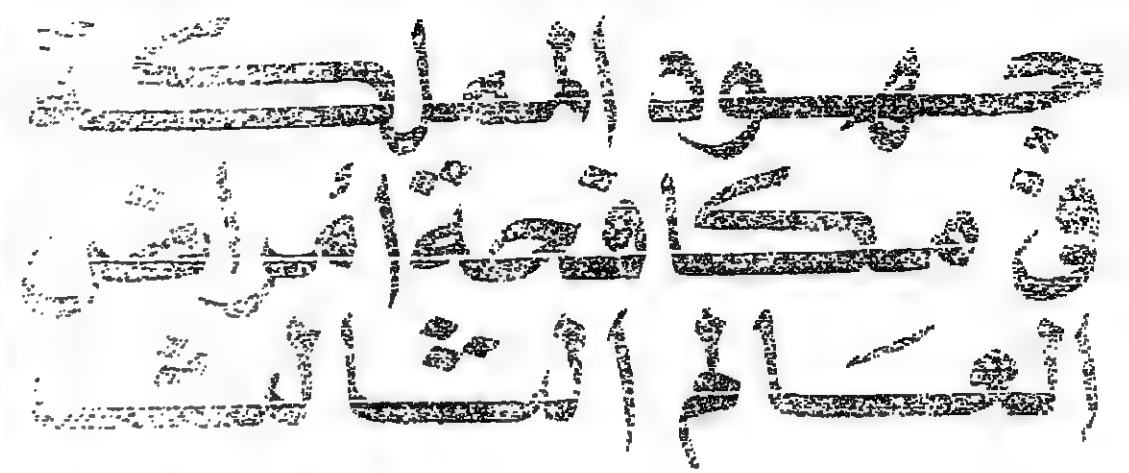 جهود المملكة
في مكافحة أمراض
العَالم الثالث